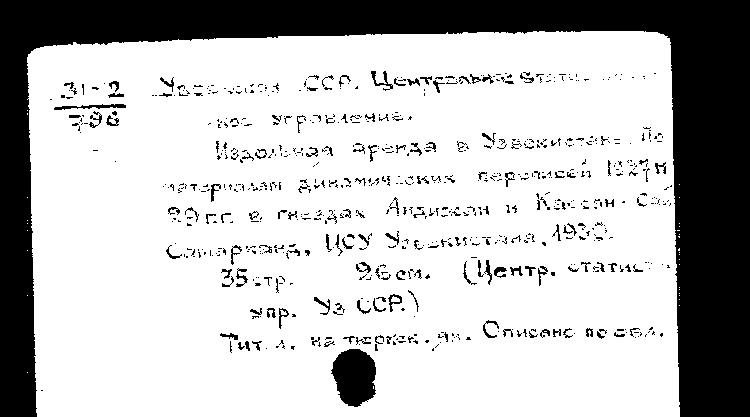 31-2
796
Узбекская ССР. Центральное статистичес-
кое управление.
Издольная аренда в Узбекистане. По
материалам динамических переписей 1927 и
29 г.г. в гнездах Андижан и Кассан-Сай
Самарканд, ЦСУ Узбекистана, 1930.
35 стр. 26 см. (Центр. статист.
упр. Уз ССР.)
Тит. л. на тюркск. яз. Описано по обл.